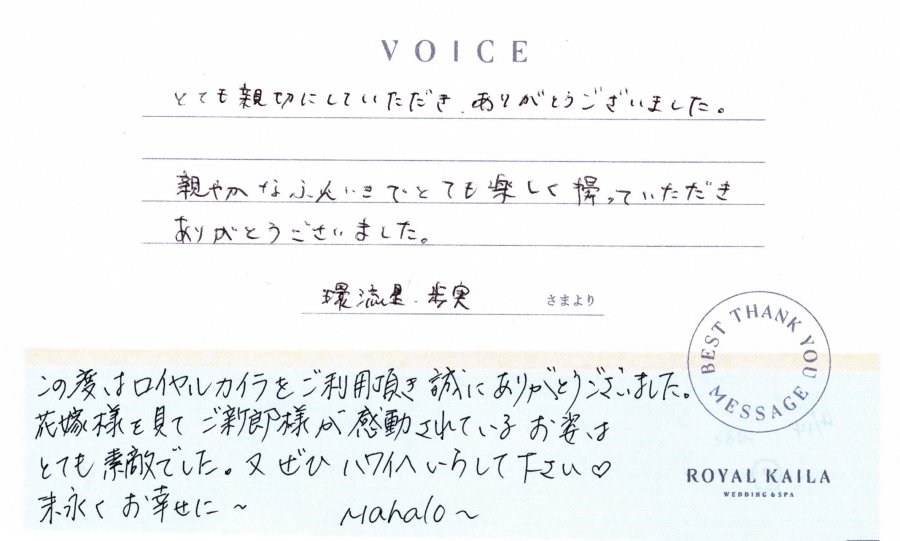 VOICE
とても親切にしていただき、ありがとうございました。
親やかなふんいきでとても楽しく撮っていただき
ありがとうございました。
環流星・歩実 さまより
BEST THANK YOU MESSAGE
この度はロイヤルカイラをご利用頂き誠にありがとうございました。
花嫁様を見てご新郎様が感動されているお姿は
とても素敵でした。又ぜひハワイへいらして下さい♡
末永くお幸せに〜 Mahalo〜
ROYAL KAILA
WEDDING & SPA